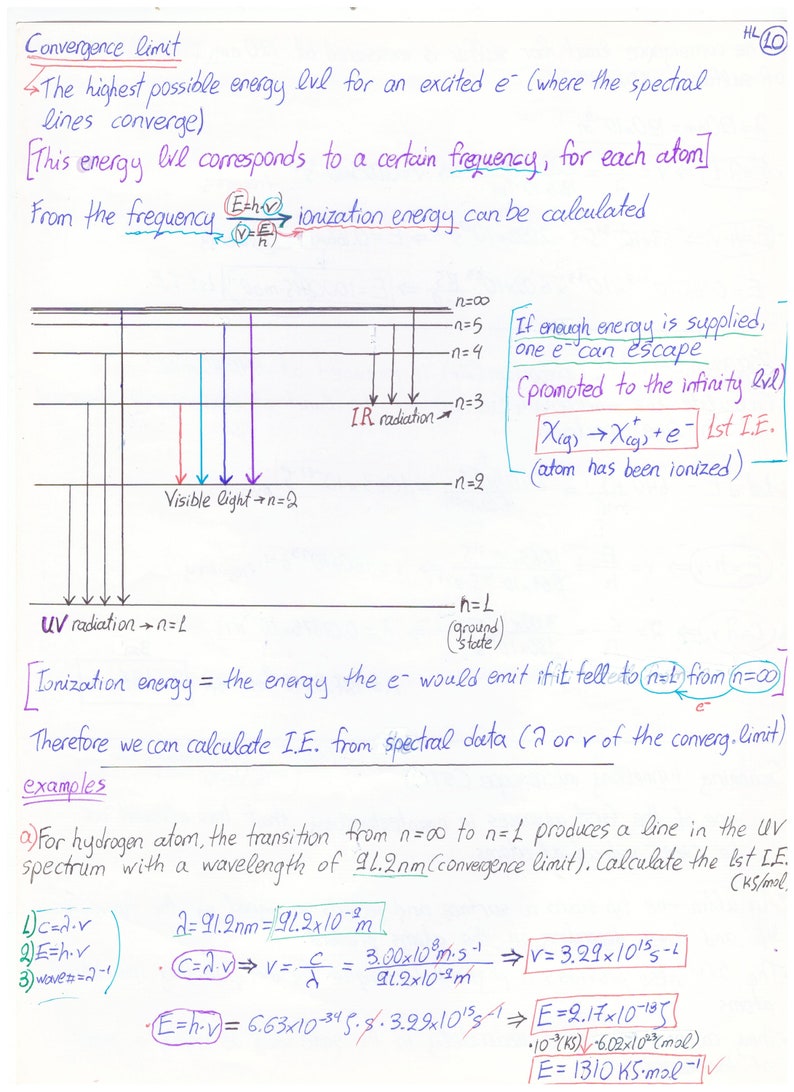 HL 10
Convergence limit
↳The highest possible energy lvl for an excited e⁻ (where the spectral
lines converge)
[This energy lvl corresponds to a certain frequency, for each atom]
From the frequency (E=h·ν) → ionization energy can be calculated
(ν=E/h)
n=∞
n=5
n=4
n=3
IR radiation
n=2
Visible light→n=2
n=1
(ground state)
UV radiation → n=1
[If enough energy is supplied,
one e⁻ can escape
(promoted to the infinity lvl)
X(g) → X⁺(g) + e⁻ 1st I.E.
(atom has been ionized)]
[Ionization energy = the energy the e⁻ would emit if it fell to n=1 from n=∞]
e⁻
Therefore we can calculate I.E. from spectral data (λ or ν of the converg. limit)
examples
a) For hydrogen atom, the transition from n=∞ to n=1 produces a line in the UV
spectrum with a wavelength of 91.2nm (convergence limit). Calculate the 1st I.E.
(KJ/mol)
1) c=λ·ν
2) E=h·ν
3) wave#=λ⁻¹
λ=91.2nm = 91.2x10⁻⁹m
C=λ·ν ⇒ ν = c/λ = 3.00x10⁸m·s⁻¹ / 91.2x10⁻⁹m ⇒ ν=3.29x10¹⁵s⁻¹
E=h·ν = 6.63x10⁻³⁴J·s · 3.29x10¹⁵s⁻¹ ⇒ E=2.17x10⁻¹⁸J
·10⁻³(KJ) ·6.02x10²³(mol)
E=1310KJ·mol⁻¹ ✓